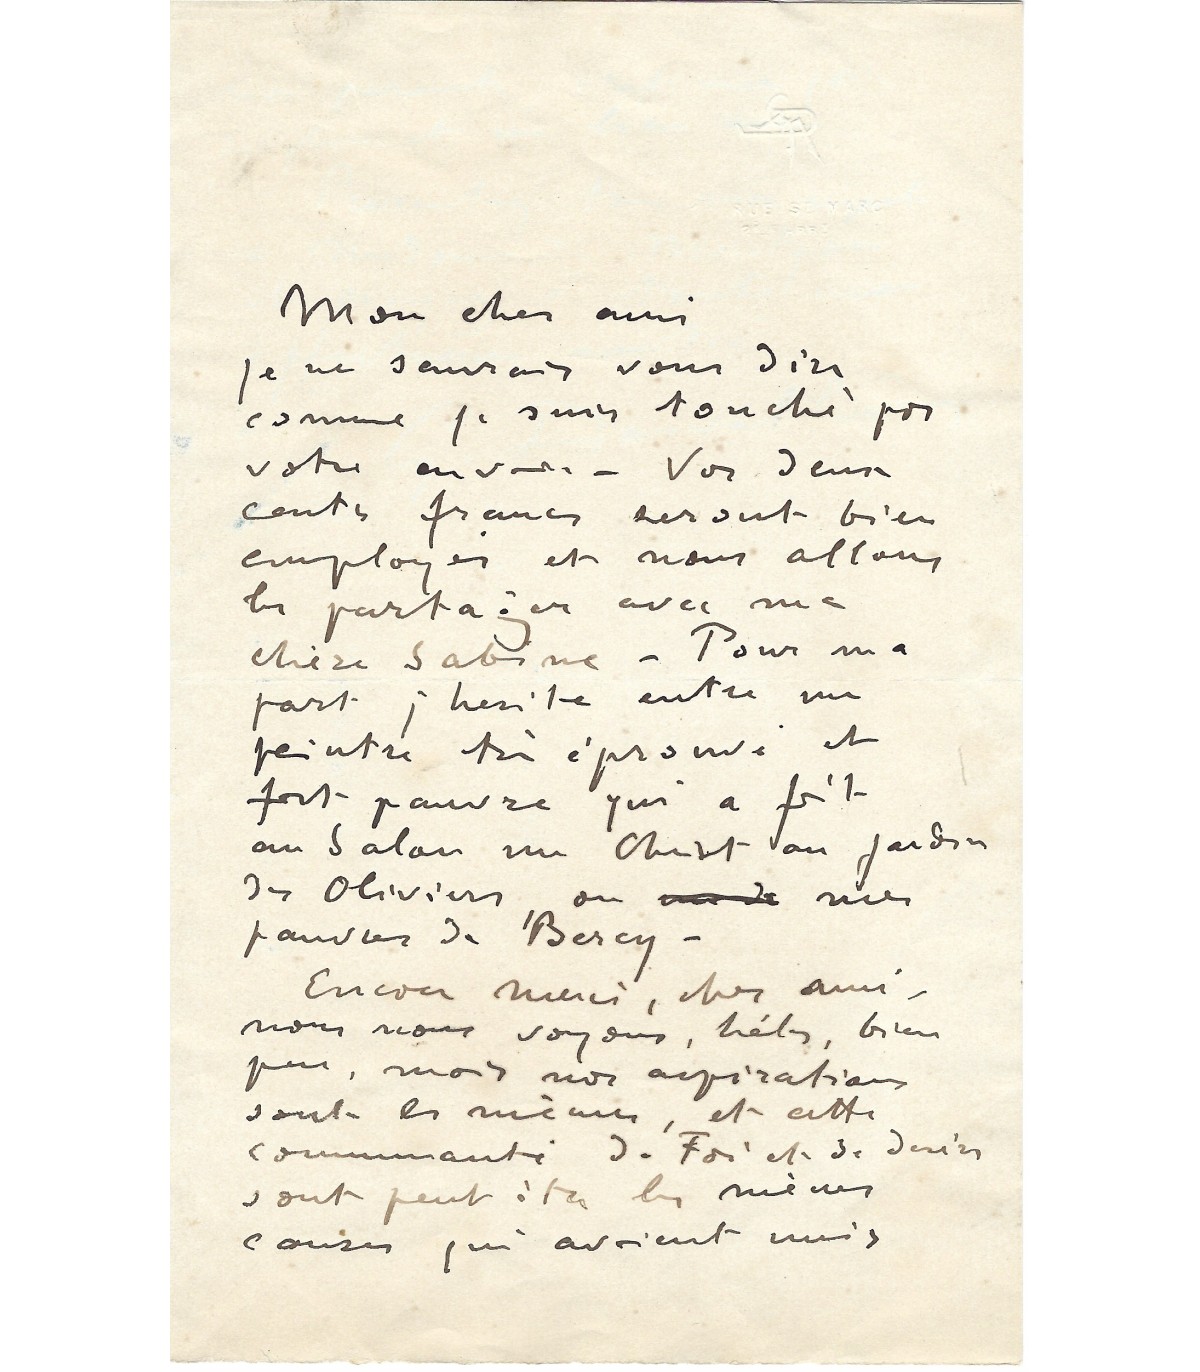 RUE St MARC
Mon cher ami
je ne saurais vous dire
comme je suis touché par
votre envoi – Vos deux
cents francs seront bien
employés et nous allons
les partager avec ma
chère Sabine – Pour ma
part j hesite entre un
peintre très éprouvé et
fort pauvre qui a fait
au Salon un Christ au jardin
des Oliviers, ou mes
pauvres de Bercy –
Encore merci, cher ami –
nous nous voyons, hélas, bien
peu, mais nos aspirations
sont les mêmes, et cette
communauté de Foi et de desirs
sont peut être les mêmes
causes qui avaient unis